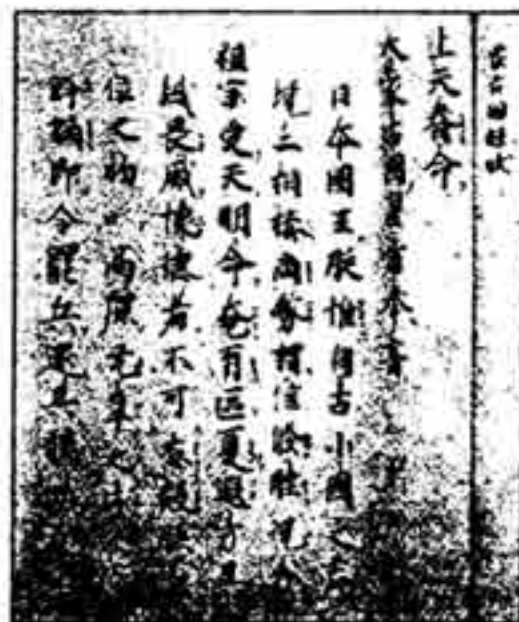 蒙古國牒状
上天眷命
大蒙古國皇帝奉書
日本國王朕惟自古小國之
境土相接尚務講信修睦況我
祖宗受天明命奄有區夏遐方異
域畏威懷德者不可悉數
位之初以高麗无辜之民
鋒鏑即令罷兵還其疆